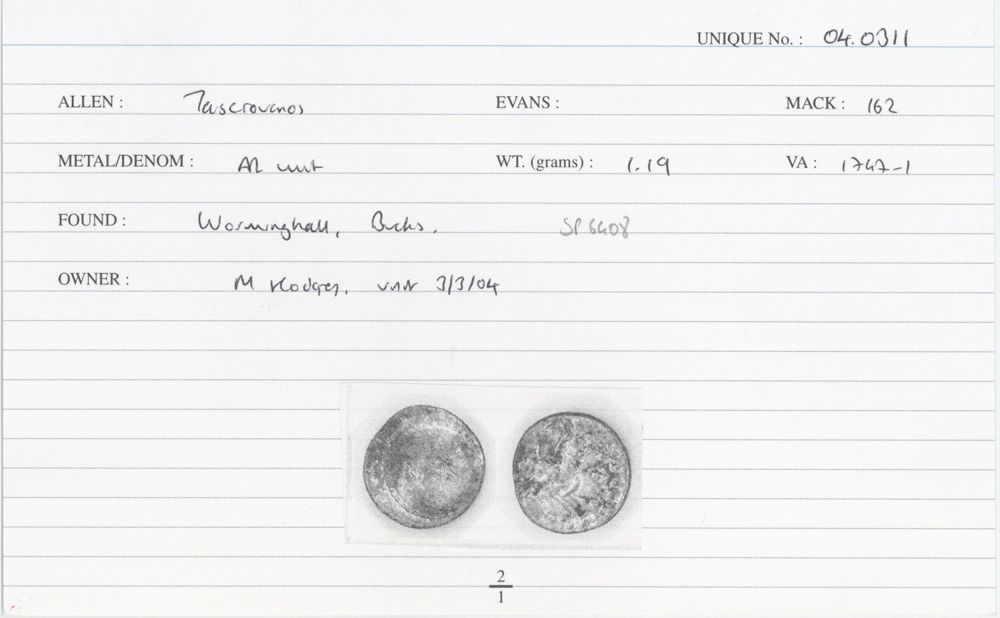 UNIQUE No. : 04.0311
ALLEN : Tasciovanos EVANS : MACK : 162
METAL/DENOM : AR unit WT. (grams) : 1.19 VA : 1747-1
FOUND : Worminghall, Bucks. SP 6408
OWNER : M Hodges, 3/3/04
2
1